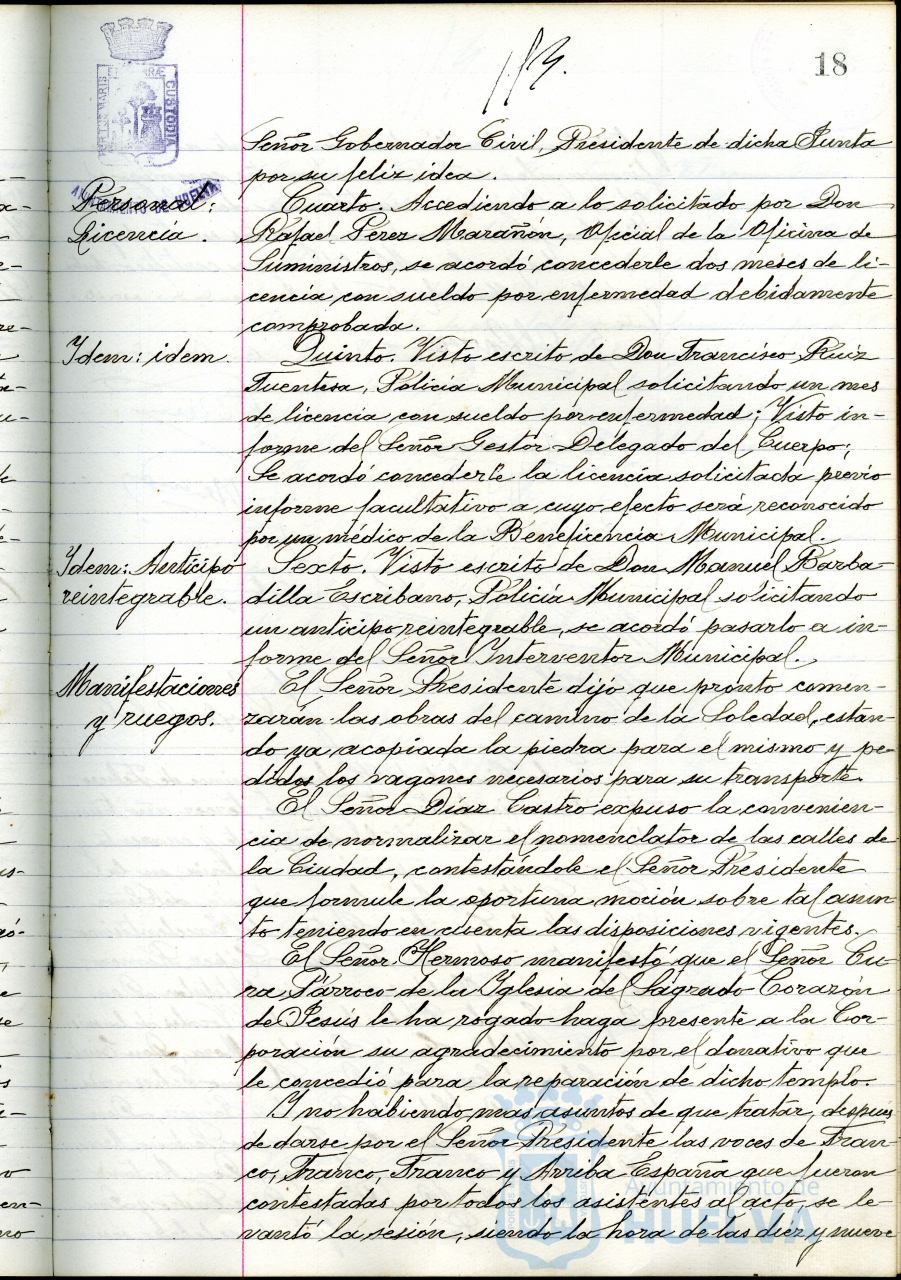 18
PORTUS MARIS ET TERRAE CUSTODIA
AYUNTAMIENTO DE HUELVA
Señor Gobernador Civil, Presidente de dicha Junta
por su feliz idea.
Personal:
Licencia.
Cuarto. Accediendo a lo solicitado por Don
Rafael Perez Marañón, Oficial de la Oficina de
Suministros, se acordó concederle dos meses de li-
cencia con sueldo por enfermedad debidamente
comprobada.
Idem: idem.
Quinto. Visto escrito de Don Francisco Ruiz
Fuentesa, Policía Municipal solicitando un mes
de licencia con sueldo por enfermedad; Visto in-
forme del Señor Gestor Delegado del Cuerpo;
Se acordó concederle la licencia solicitada previo
informe facultativo a cuyo efecto será reconocido
por un médico de la Beneficencia Municipal.
Idem: Anticipo
reintegrable.
Sexto. Visto escrito de Don Manuel Barba-
dilla Escribano, Policía Municipal solicitando
un anticipo reintegrable, se acordó pasarlo a in-
forme del Señor Interventor Municipal.
Manifestaciones
y ruegos.
El Señor Presidente dijo que pronto comen-
zarán las obras del camino de la Soledad, estan-
do ya acopiada la piedra para el mismo y pe-
didos los vagones necesarios para su transporte.
El Señor Díaz Castro expuso la convenien-
cia de normalizar el nomenclator de las calles de
la Ciudad, contestándole el Señor Presidente
que formule la oportuna moción sobre tal asun-
to teniendo en cuenta las disposiciones vigentes.
El Señor Hermoso manifestó que el Señor Cu-
ra Párroco de la Iglesia del Sagrado Corazón
de Jesús le ha rogado haga presente a la Cor-
poración su agradecimiento por el donativo que
le concedió para la reparación de dicho templo.
Y no habiendo mas asuntos de que tratar, después
de darse por el Señor Presidente las voces de Fran-
co, Franco, Franco y Arriba España que fueron
contestadas por todos los asistentes al acto, se le-
vantó la sesión, siendo la hora de las diez y nueve
Ayuntamiento de
HUELVA